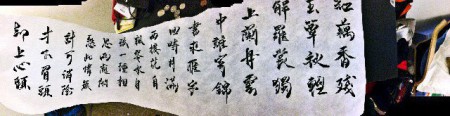 紅藕香殘
玉簟秋輕
解羅裳獨
上蘭舟雲
中誰寄錦
書來雁字
回時月滿
西樓花自
飄零水自
流一種相
思兩處閒
愁此情無
計可消除
才下眉頭
卻上心頭